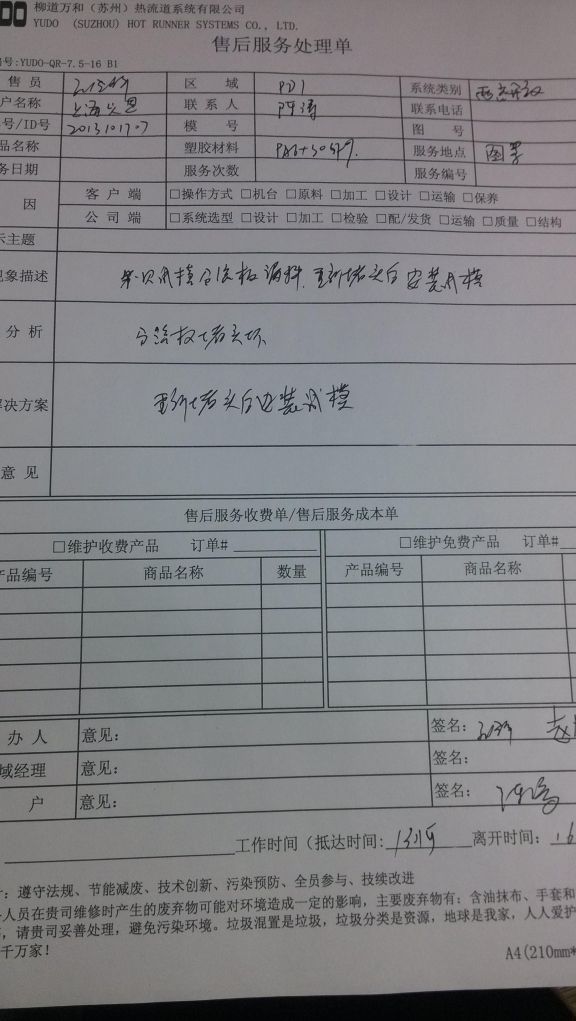 UDO 柳道万和（苏州）热流道系统有限公司
YUDO (SUZHOU) HOT RUNNER SYSTEMS CO., LTD.
售后服务处理单
号:YUDO-QR-7.5-16 B1
售 员 区 域 PD1 系统类别
户名称 上海 联 系 人 陈涛 联系电话
号/ID号 2013101707 模 号 图 号
品名称 塑胶材料 PA6+30%GF 服务地点
务日期 服务次数 服务编号
因 客 户 端 □操作方式 □机台 □原料 □加工 □设计 □运输 □保养
公 司 端 □系统选型 □设计 □加工 □检验 □配/发货 □运输 □质量 □结构
示主题
现象描述 漏料 重新堵头后安装试模
分 析 分流板堵头坏
解决方案 重新堵头后安装试模
意 见
售后服务收费单/售后服务成本单
□维护收费产品 订单# □维护免费产品 订单#
产品编号 商品名称 数量 产品编号 商品名称
办 人 意见： 签名：
域经理 意见： 签名：
户 意见： 签名： 陈涛
工作时间（抵达时间: 13时 离开时间： 16
：遵守法规、节能减废、技术创新、污染预防、全员参与、技续改进
人员在贵司维修时产生的废弃物可能对环境造成一定的影响，主要废弃物有：含油抹布、手套和
，请贵司妥善处理，避免污染环境。垃圾混置是垃圾，垃圾分类是资源，地球是我家，人人爱护
千万家！
A4(210mm*